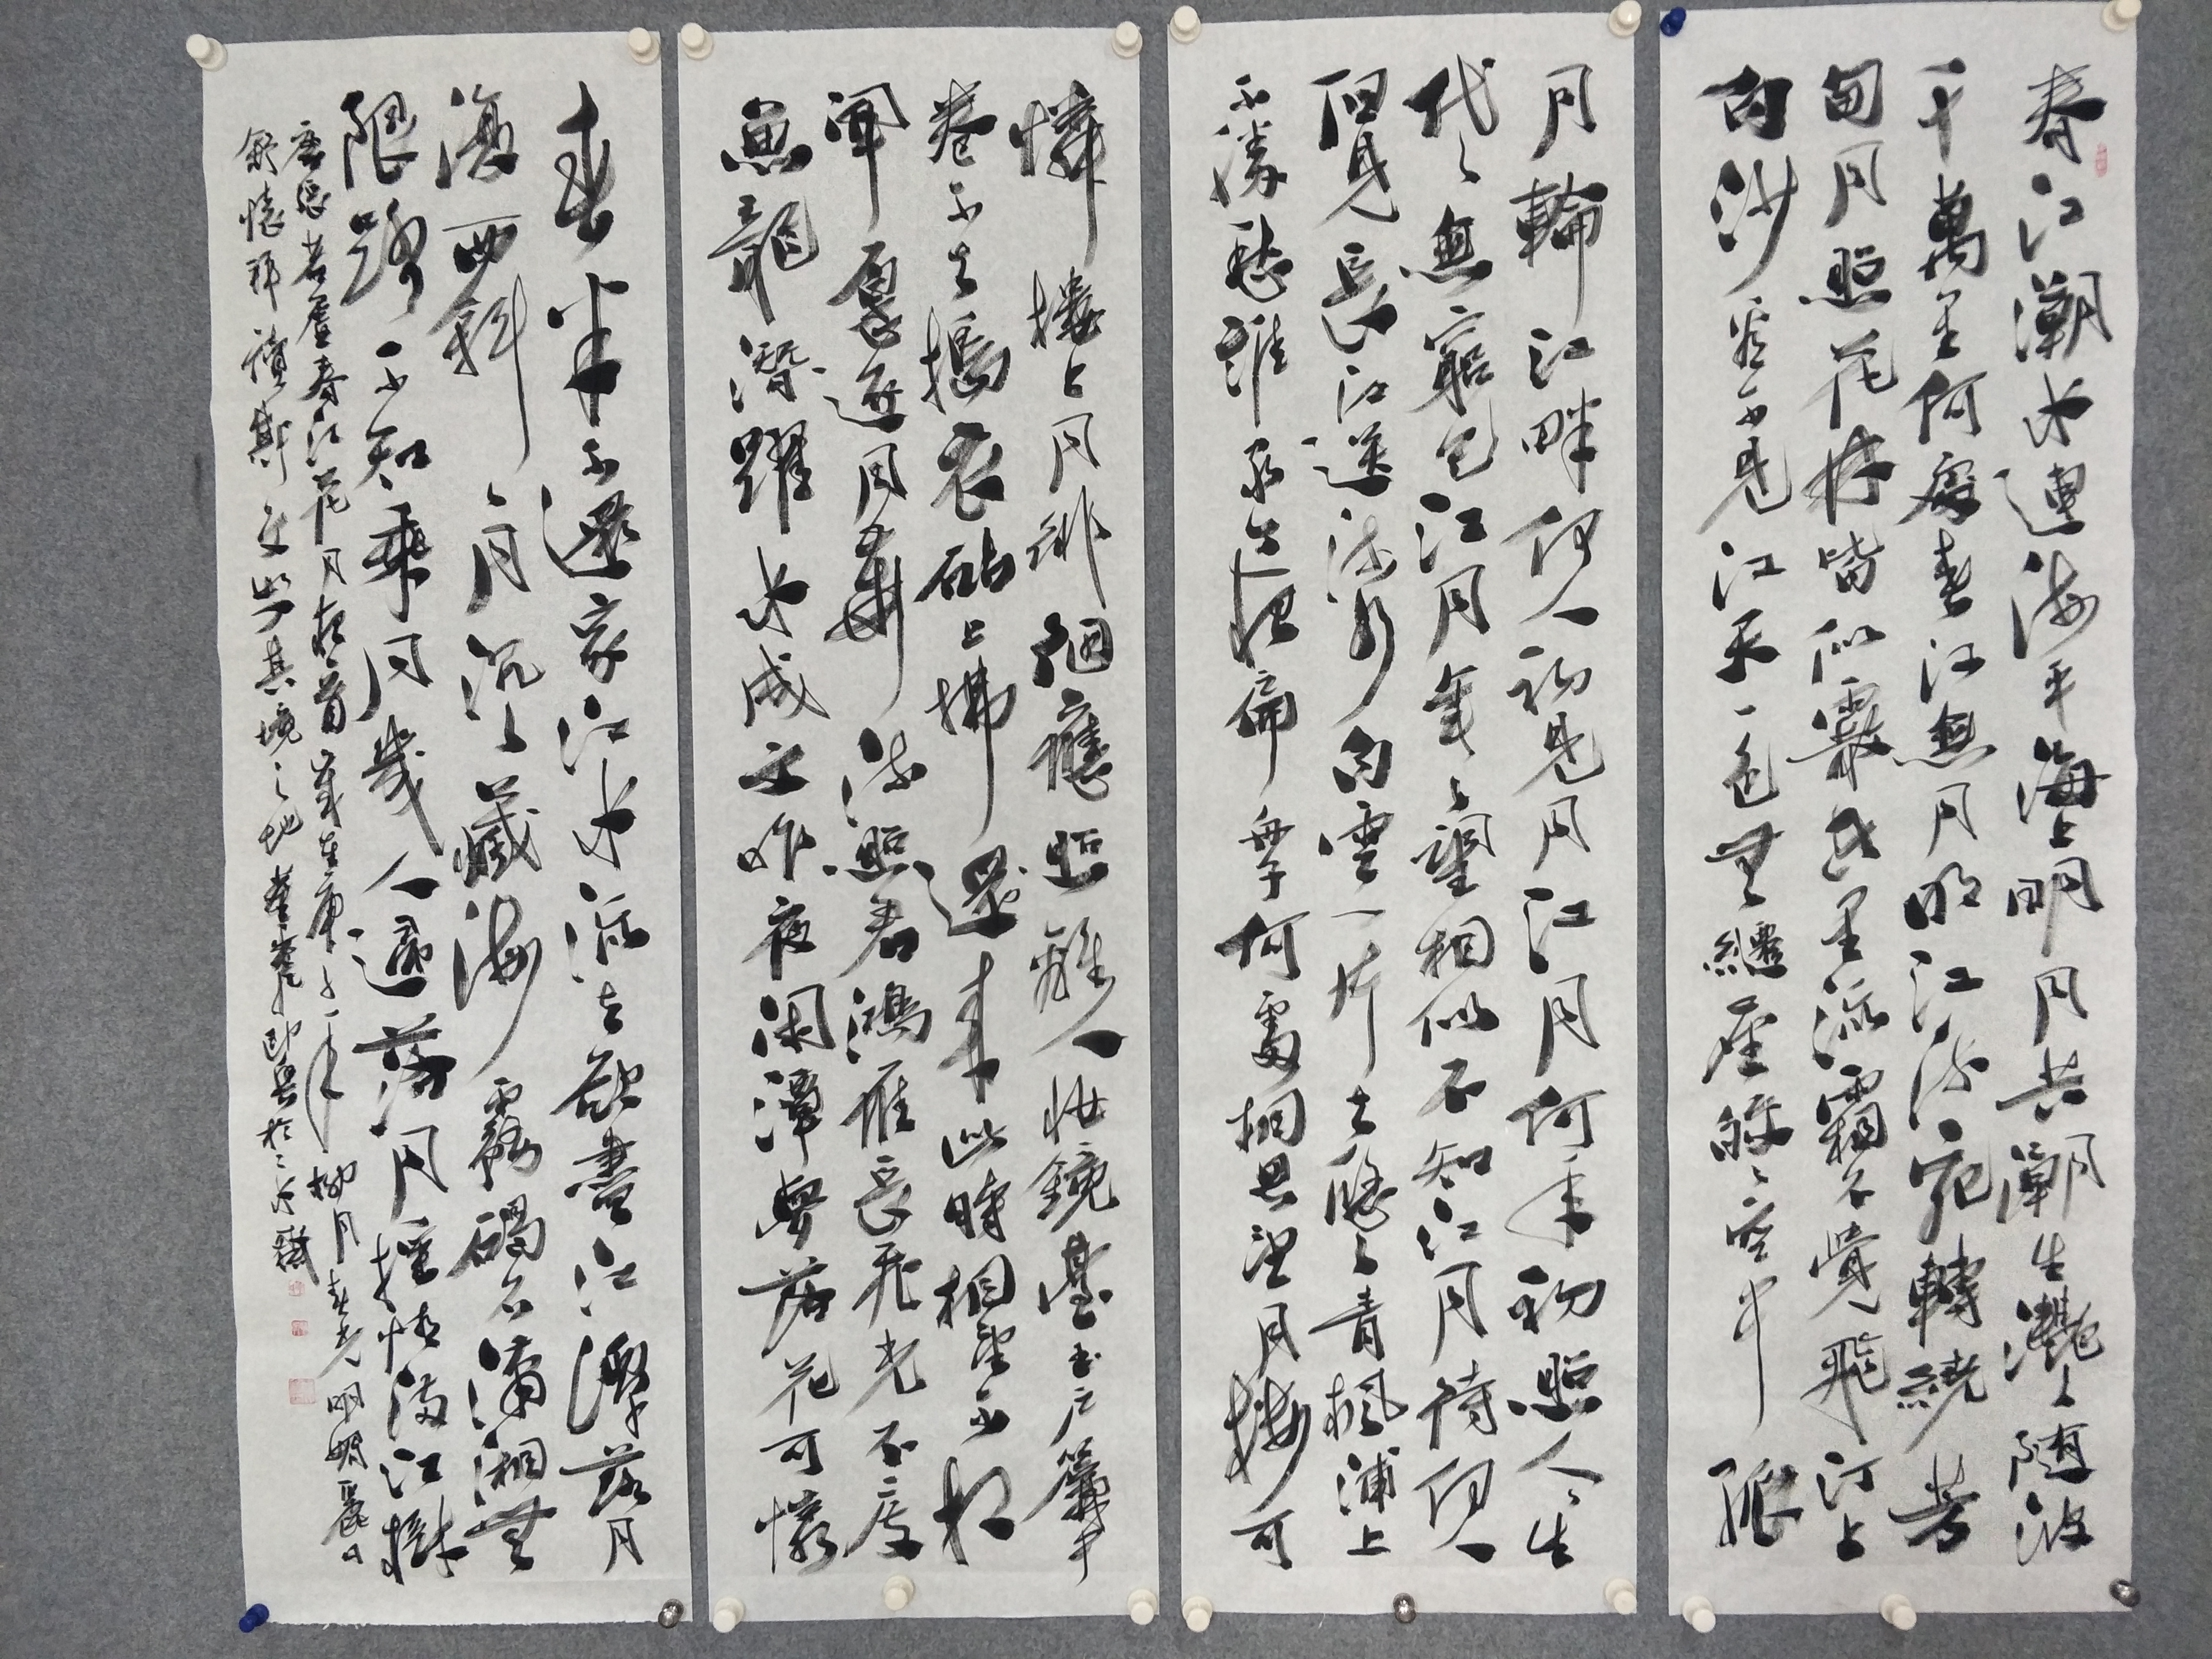 春江潮水連海平海上明月共潮生灩灩隨波
千萬里何處春江無月明江流宛轉繞芳
甸月照花林皆似霰空里流霜不覺飛汀上
白沙看不見江天一色無纖塵皎皎空中孤
月輪江畔何人初見月江月何年初照人人生
代代無窮已江月年年望相似不知江月待何人
但見長江送流水白雲一片去悠悠青楓浦上
不勝愁誰家今夜扁舟子何處相思望月樓可
憐樓上月徘徊應照離人妝鏡臺玉戶簾中
卷不去搗衣砧上拂還來此時相望不相
聞願逐月華流照君鴻雁長飛光不度
魚龍潛躍水成文昨夜閑潭夢落花可憐
春半不還家江水流去欲盡江潭落月
復西斜斜月沉沉藏海霧碣石瀟湘無
限路不知乘月幾人歸落月搖情滿江樹
唐張若虛春江花月夜首歲在庚子年柳月春光明媚麗日
舒懷拜讀斯文其境之地即興於